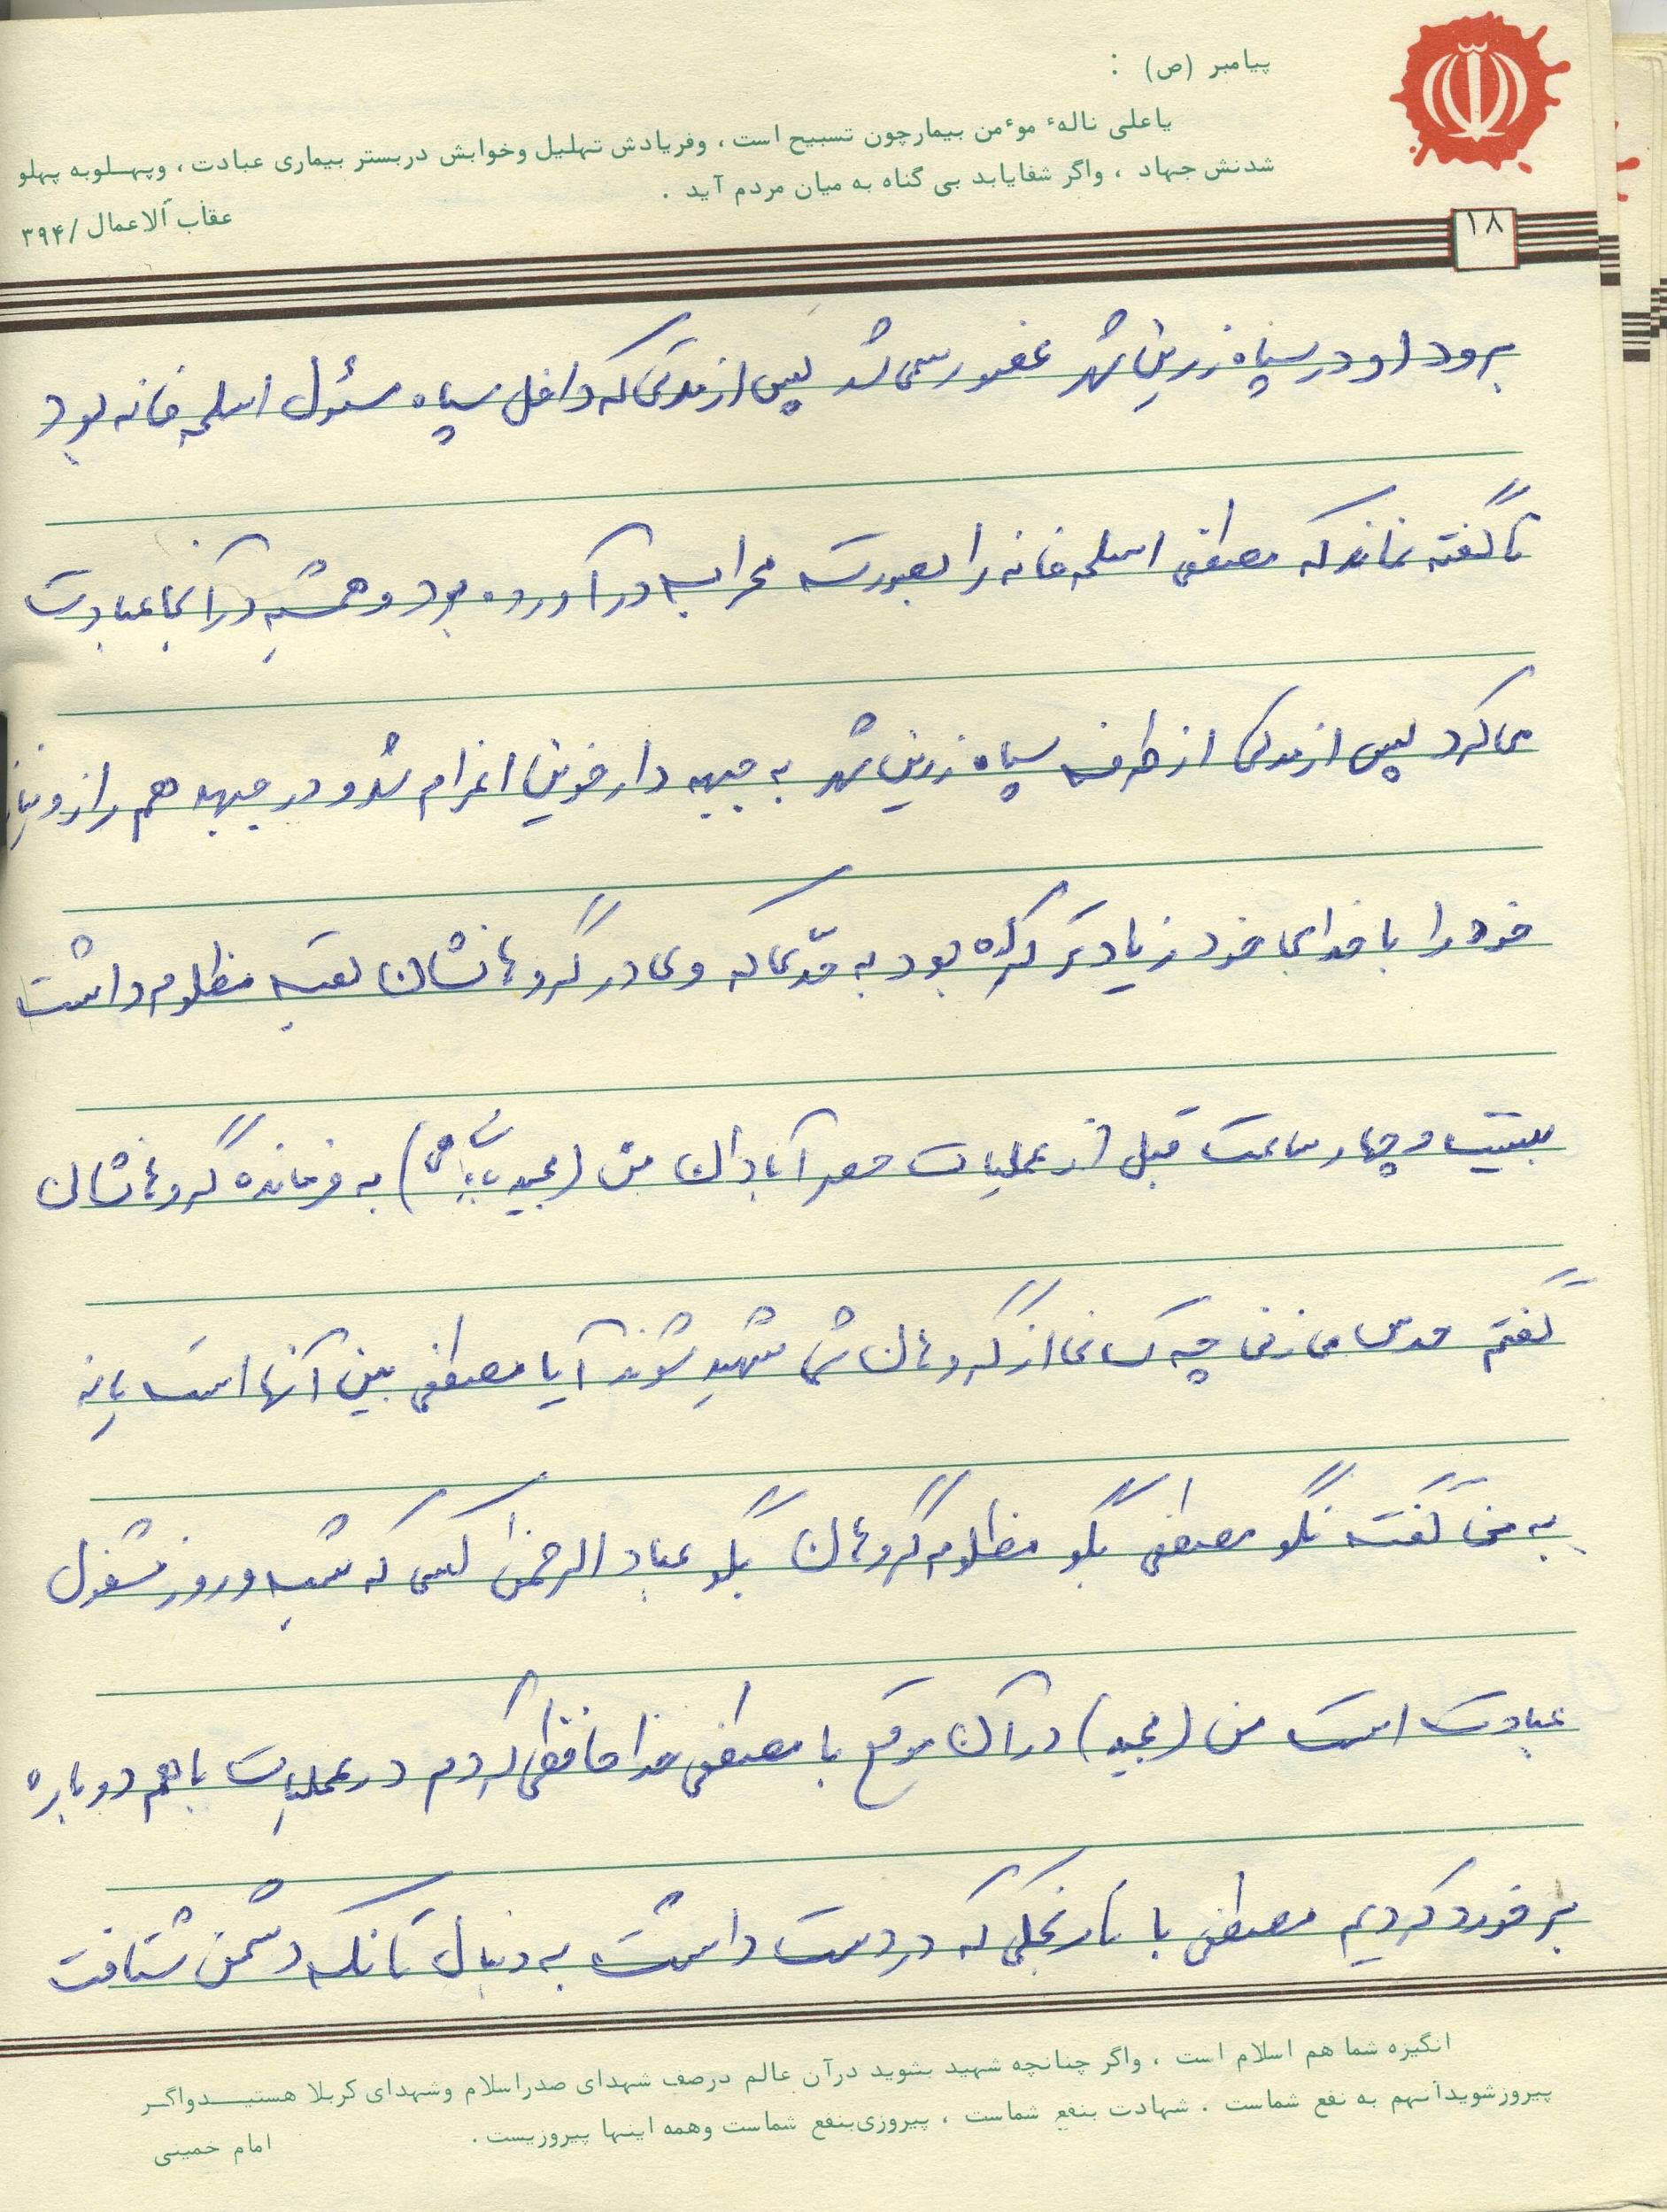 پیامبر (ص) :
یاعلی نالهٔ موٴمن بیمارچون تسبیح است ، وفریادش تهلیل وخوابش دربستر بیماری عبادت ، وپهـلـوبه پهلو
شدنش جهاد ، واگر شفایابد بی گناه به میان مردم آید .
عقاب آلاعمال /۳۹۴
۱۸
برود او در سپاه زرین شهر عضو رسمی شد پس از مدتی که داخل سپاه مسئول اسلحه خانه بود
ناگفته نماند که مصطفی اسلحه خانه را بصورت محرابی در آورده بود و همیشه در آنجا عبادت
می کرد پس از مدتی از طرف سپاه زرین شهر به جبهه دارخوین اعزام شد و در جبهه هم راز و نیاز
خود را با خدای خود زیادتر کرده بود به حدّی که وی در گروهانشان لقب مظلوم داشت
بیست و چهار ساعت قبل از عملیات حصر آبادان من (مجید) به فرمانده گروهانشان
گفتم حدس می زنی چه کسانی از گروهان شما شهید شوند آیا مصطفی بین آنها است یا نه
به من گفت نگو مصطفی بگو مظلوم گروهان بگو عباد الرحمن کسی که شب و روز مشغول
عبادت است من (مجید) در آن موقع با مصطفی خداحافظی کردم در عملیات با هم دوباره
برخورد کردیم مصطفی با نارنجکی که در دست داشت به دنبال تانک دشمن شتافت
انگیزه شما هم اسلام است ، واگر چنانچه شهید بشوید درآن عالم درصف شهدای صدراسلام وشهدای کربلا هستیـــدواگـر
پیروزشویدآنهم به نفع شماست . شهادت بنفع شماست ، پیروزی‌بنفع شماست وهمه اینها پیروزیست .
امام خمینی